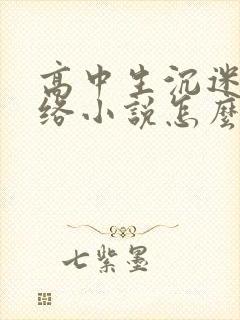 高中生沉迷
络小说怎么
七紫墨